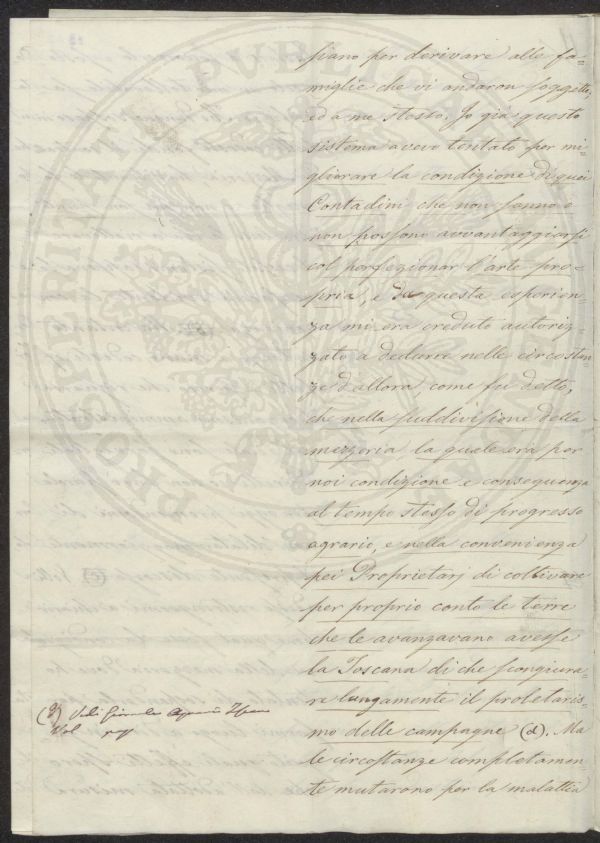 siano per derivare alle fa=
miglie che vi andaron soggette,
ed a me stesso. Io già questo
sistema avevo tentato per mi=
gliorare la condizione di quei
Contadini che non sanno e
non possono avvantaggiarsi
col perfezionar l'arte pro=
pria, e da questa esperien=
za mi era creduto autoriz=
zato a dedurre nelle circostan=
ze d'allora come fu detto,
che nella suddivisione della
mezzeria la quale era per
noi condizione e conseguenza
al tempo stesso di progresso
agrario, e nella convenienza
pei Proprietarj di coltivare
per proprio conto le terre
che le avanzavano avesse
la Toscana di che scongiura=
re lungamente il proletaris=
mo delle campagne (d). Ma
le circostanze completamen=
te mutarono per la malattia
(d) Vedi Giornale Agrario
Vol
PROSPERITATI PUBLICAE